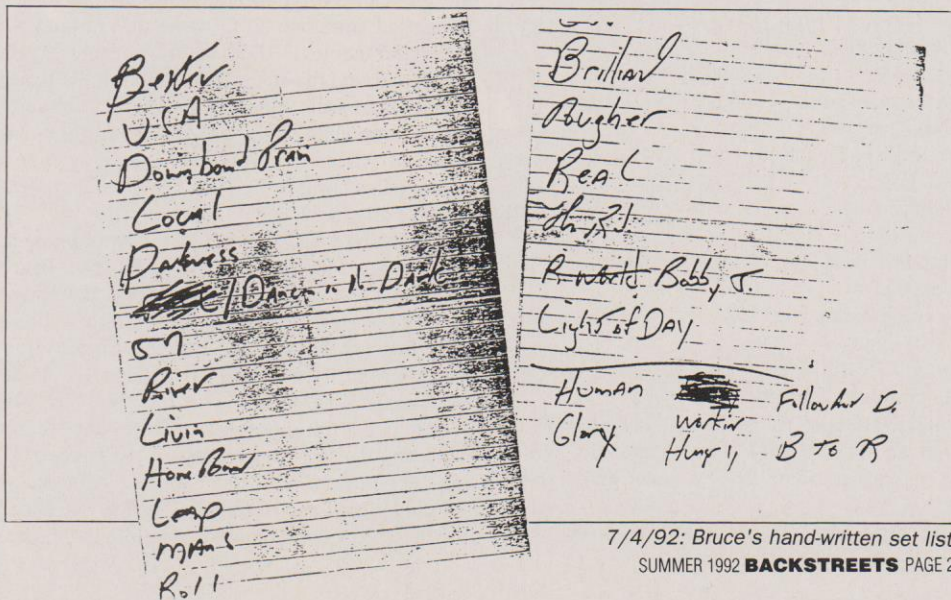 Better
USA
Downbound Train
Local
Darkness
/ Dancin in the Dark
57
River
Livin
Leap
Mans
Roll
Brillian
Tougher
Real
R. World Bobby J.
Light of Day
Human
Glory
Workin
Hungry
B to R
7/4/92: Bruce's hand-written set list
SUMMER 1992 BACKSTREETS PAGE 2